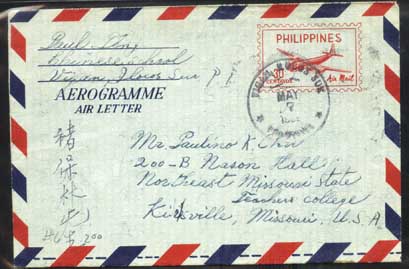 Chinese school
Vigan, Ilocos Sur P.I.
AEROGRAMME
AIR LETTER
PHILIPPINES
30
CENTAVOS
Air Mail
VIGAN, ILOCOS SUR
MAY
7
PHILIPPINES
Mr. Paulino K.
200-B Nason Hall
Northeast Missouri State
Teachers College
Kirksville, Missouri, U.S.A.